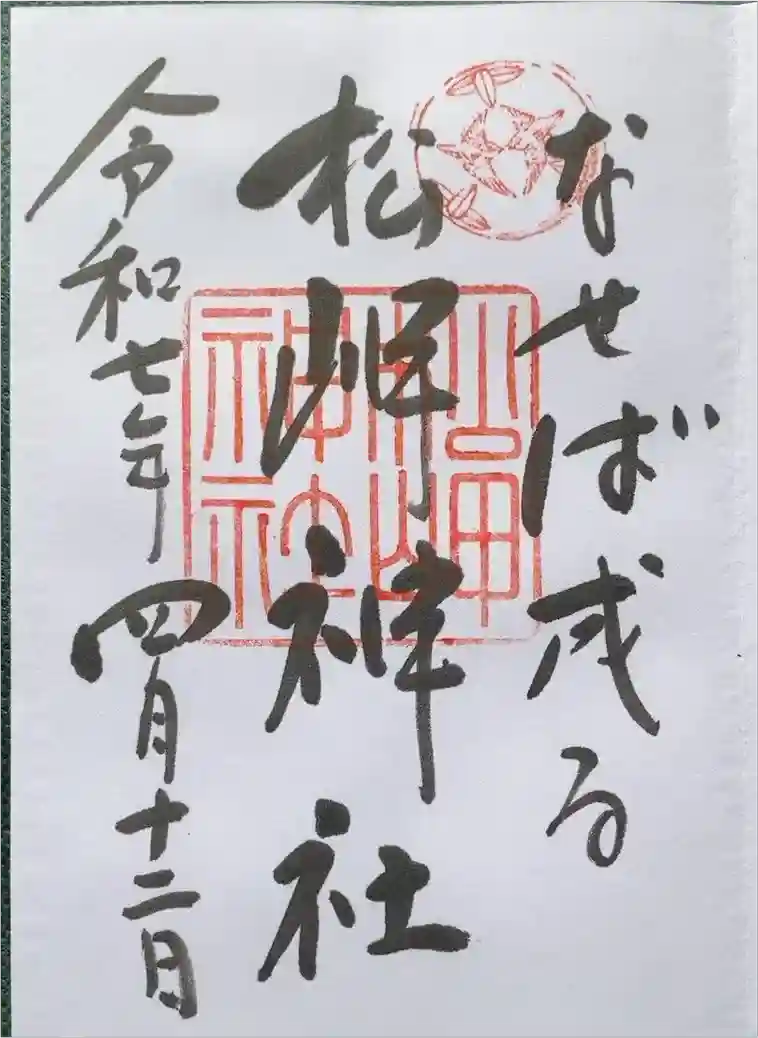 なせば成る
松岬神社
松岬神社
令和七年四月十二日